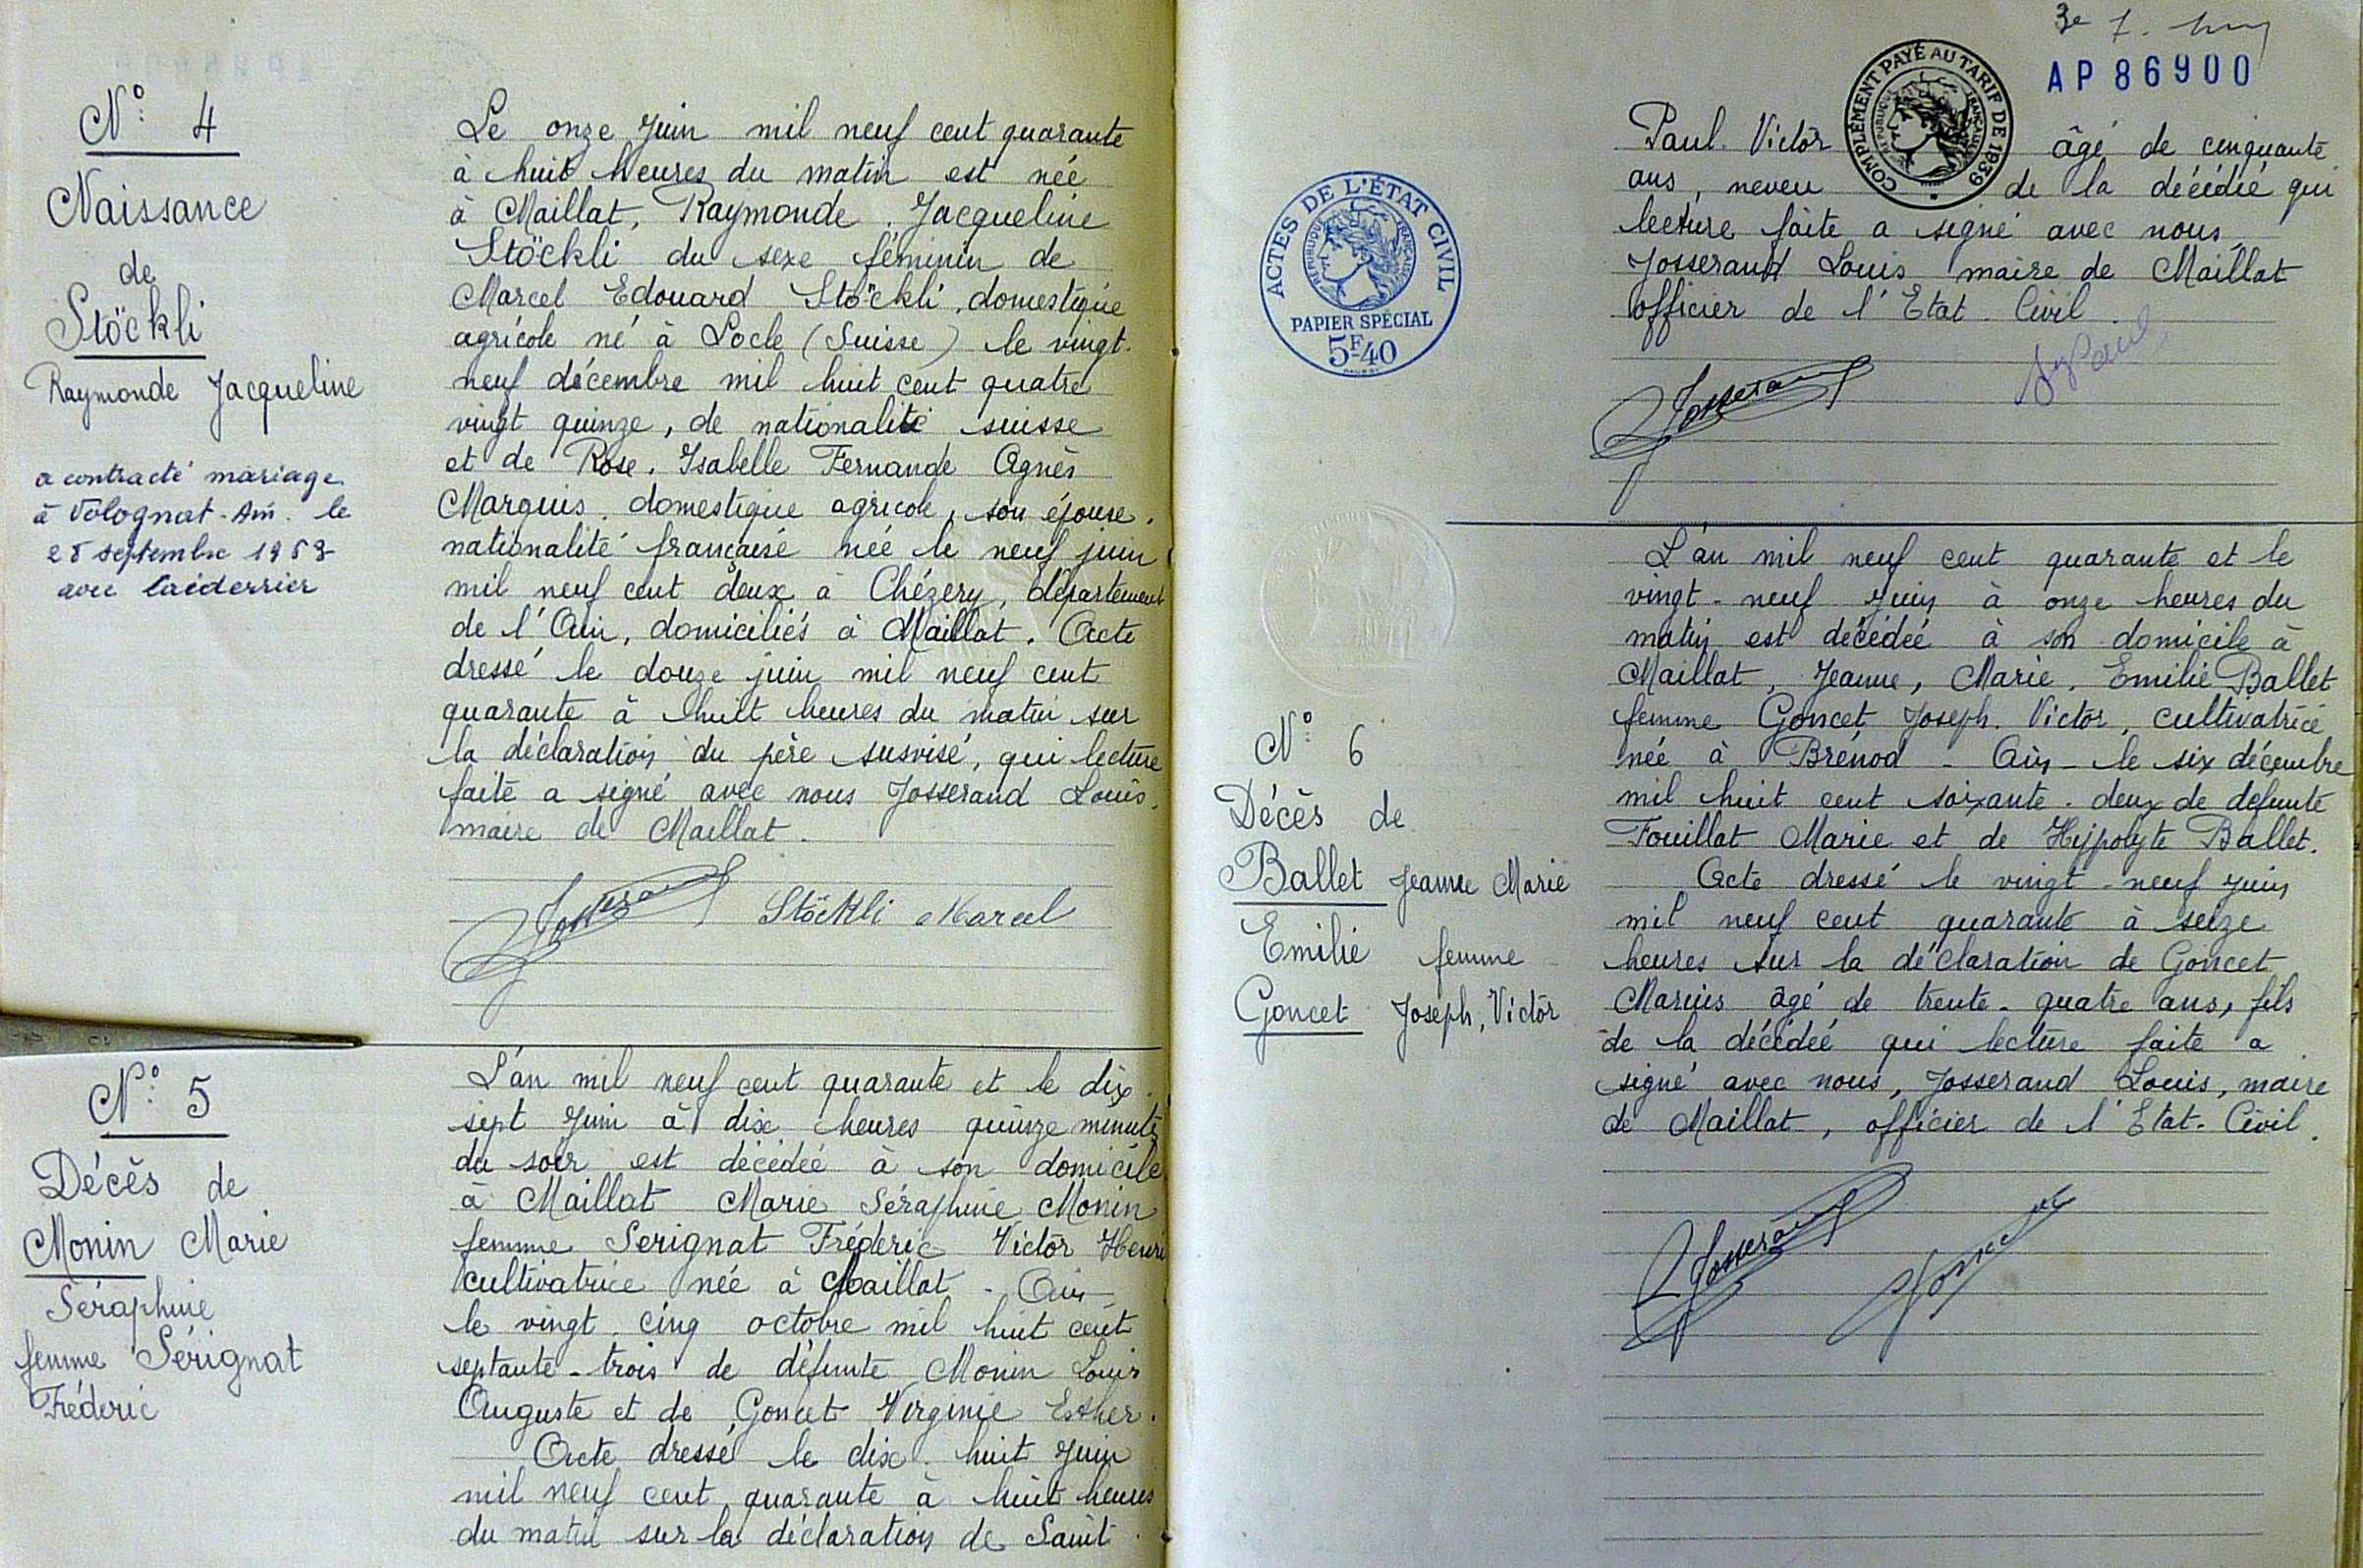 N° 4
Naissance
de
Stöckli
Raymonde Jacqueline
a contracté mariage
à Volognat - Ain. le
septembre
avec
Le onze Juin mil neuf cent quarante
à huit heures du matin est née
à Maillat, Raymonde. Jacqueline
Stöckli du sexe féminin de
Marcel Edouard Stöckli. domestique
agricole né à Locle (Suisse) le vingt.
neuf décembre mil huit cent quatre
vingt quinze, de nationalité suisse
et de Rose. Isabelle Fernande Agnès
Marquis. domestique agricole, son épouse.
nationalité française née le neuf juin
mil neuf cent deux à Chézery, département
de l'Ain, domiciliés à Maillat. Acte
dressé le douze juin mil neuf cent
quarante à huit heures du matin sur
la déclaration du père susvisé, qui lecture
faite a signé avec nous Josserand Louis.
maire de Maillat.
Josserand Stöckli Marcel
N° 5
Décès de
Monin Marie
Séraphine
femme Sérignat
Fréderic
L'an mil neuf cent quarante et le dix.
sept Juin à dix heures quinze minutes
du soir est décédée à son domicile
à Maillat Marie Séraphine Monin
femme Serignat Fréderic Victor Henri
cultivatrice née à Maillat - Ain -
le vingt. cinq octobre mil huit cent
septante-trois de défunte Monin Louis
Auguste et de Goncet Virginie Esther.
Acte dressé le dix. huit Juin
mil neuf cent quarante à huit heures
du matin sur la déclaration de Saint.
3e
AP 86900
COMPLÉMENT PAYÉ AU TARIF DE 1939
RÉPUBLIQUE FRANÇAISE
Paul. Victor âgé de cinquante
ans, neveu de la décédée qui
lecture faite a signé avec nous,
Josserand Louis maire de Maillat
officier de l'Etat. Civil.
Josserand
ACTES DE L'ÉTAT CIVIL
RÉPUBLIQUE FRANÇAISE
PAPIER SPÉCIAL
5F40
N° 6
Décès de
Ballet Jeanne Marie
Emilie femme
Goncet Joseph, Victor
L'an mil neuf cent quarante et le
vingt-neuf Juin à onze heures du
matin est décédée à son domicile à
Maillat, Jeanne, Marie. Emilie Ballet
femme Goncet Joseph. Victor, cultivatrice
née à Brénod - Ain - le six décembre
mil huit cent soixante. deux de défunte
Fouillat Marie et de Hippolyte Ballet.
Acte dressé le vingt-neuf Juin
mil neuf cent quarante à seize
heures sur la déclaration de Goncet
Marius âgé de trente-quatre ans, fils
de la décédée qui lecture faite a
signé avec nous, Josserand Louis, maire
de Maillat, officier de l'Etat-Civil.
Josserand Goncet